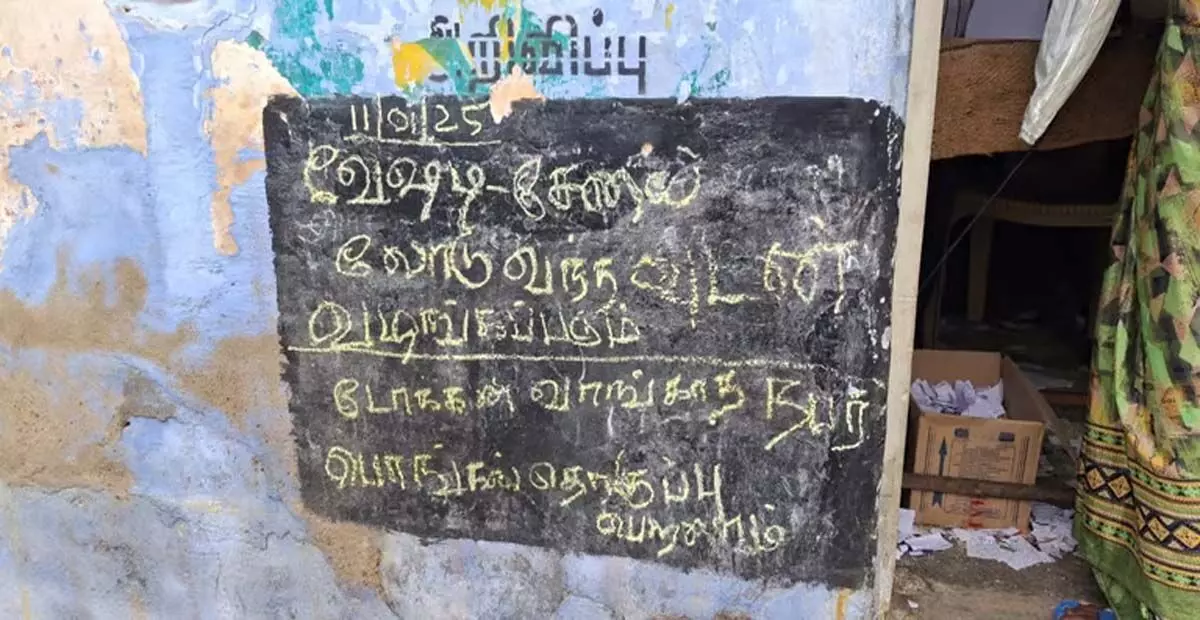 அறிவிப்பு
11/01/25
வேஷ்டி-சேலை
லோடு வந்தவுடன்
வழங்கப்படும்
டோக்கன் வாங்காத நபர்
பொங்கல் தொகுப்பு
பெறலாம்